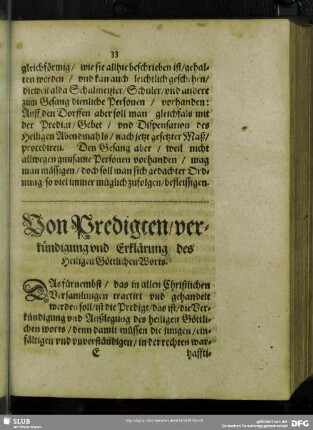 33
gleichförmig / wie sie allhie beschrieben ist / gehal-
ten werden / vnd kan auch leichtlich geschehen /
dieweil alda Schulmeister / Schuler / vnd andere
zum Gesang dienliche Personen / vorhanden:
Auff den Dorffen aber soll man gleichfals mit
der Predigt / Gebet / vnd Dispensation des
Heiligen Abendmahls / nach jetzt gesetzter Maß /
procediren. Den Gesang aber / weil nicht
allwegen gnugsame Personen vorhanden / mag
man mässigen / doch soll man sich gedachter Ord-
nung so viel immer müglich zufolgen / befleissigen.
Von Predigten / ver-
kündigung vnd Erklärung des
Heiligen Göttlichen Worts.
DAs fürnembst / das in allen Christlichen
Versamlungen tractirt vnd gehandelt
werden soll / ist die Predigt / das ist / die Ver-
kündigung vnd Außlegung des heiligen Göttli-
chen worts / denn damit müssen die jungen / ein-
fältigen vnd vnverständigen / in der rechten war-
E
hafftı-
SLUB
DFG